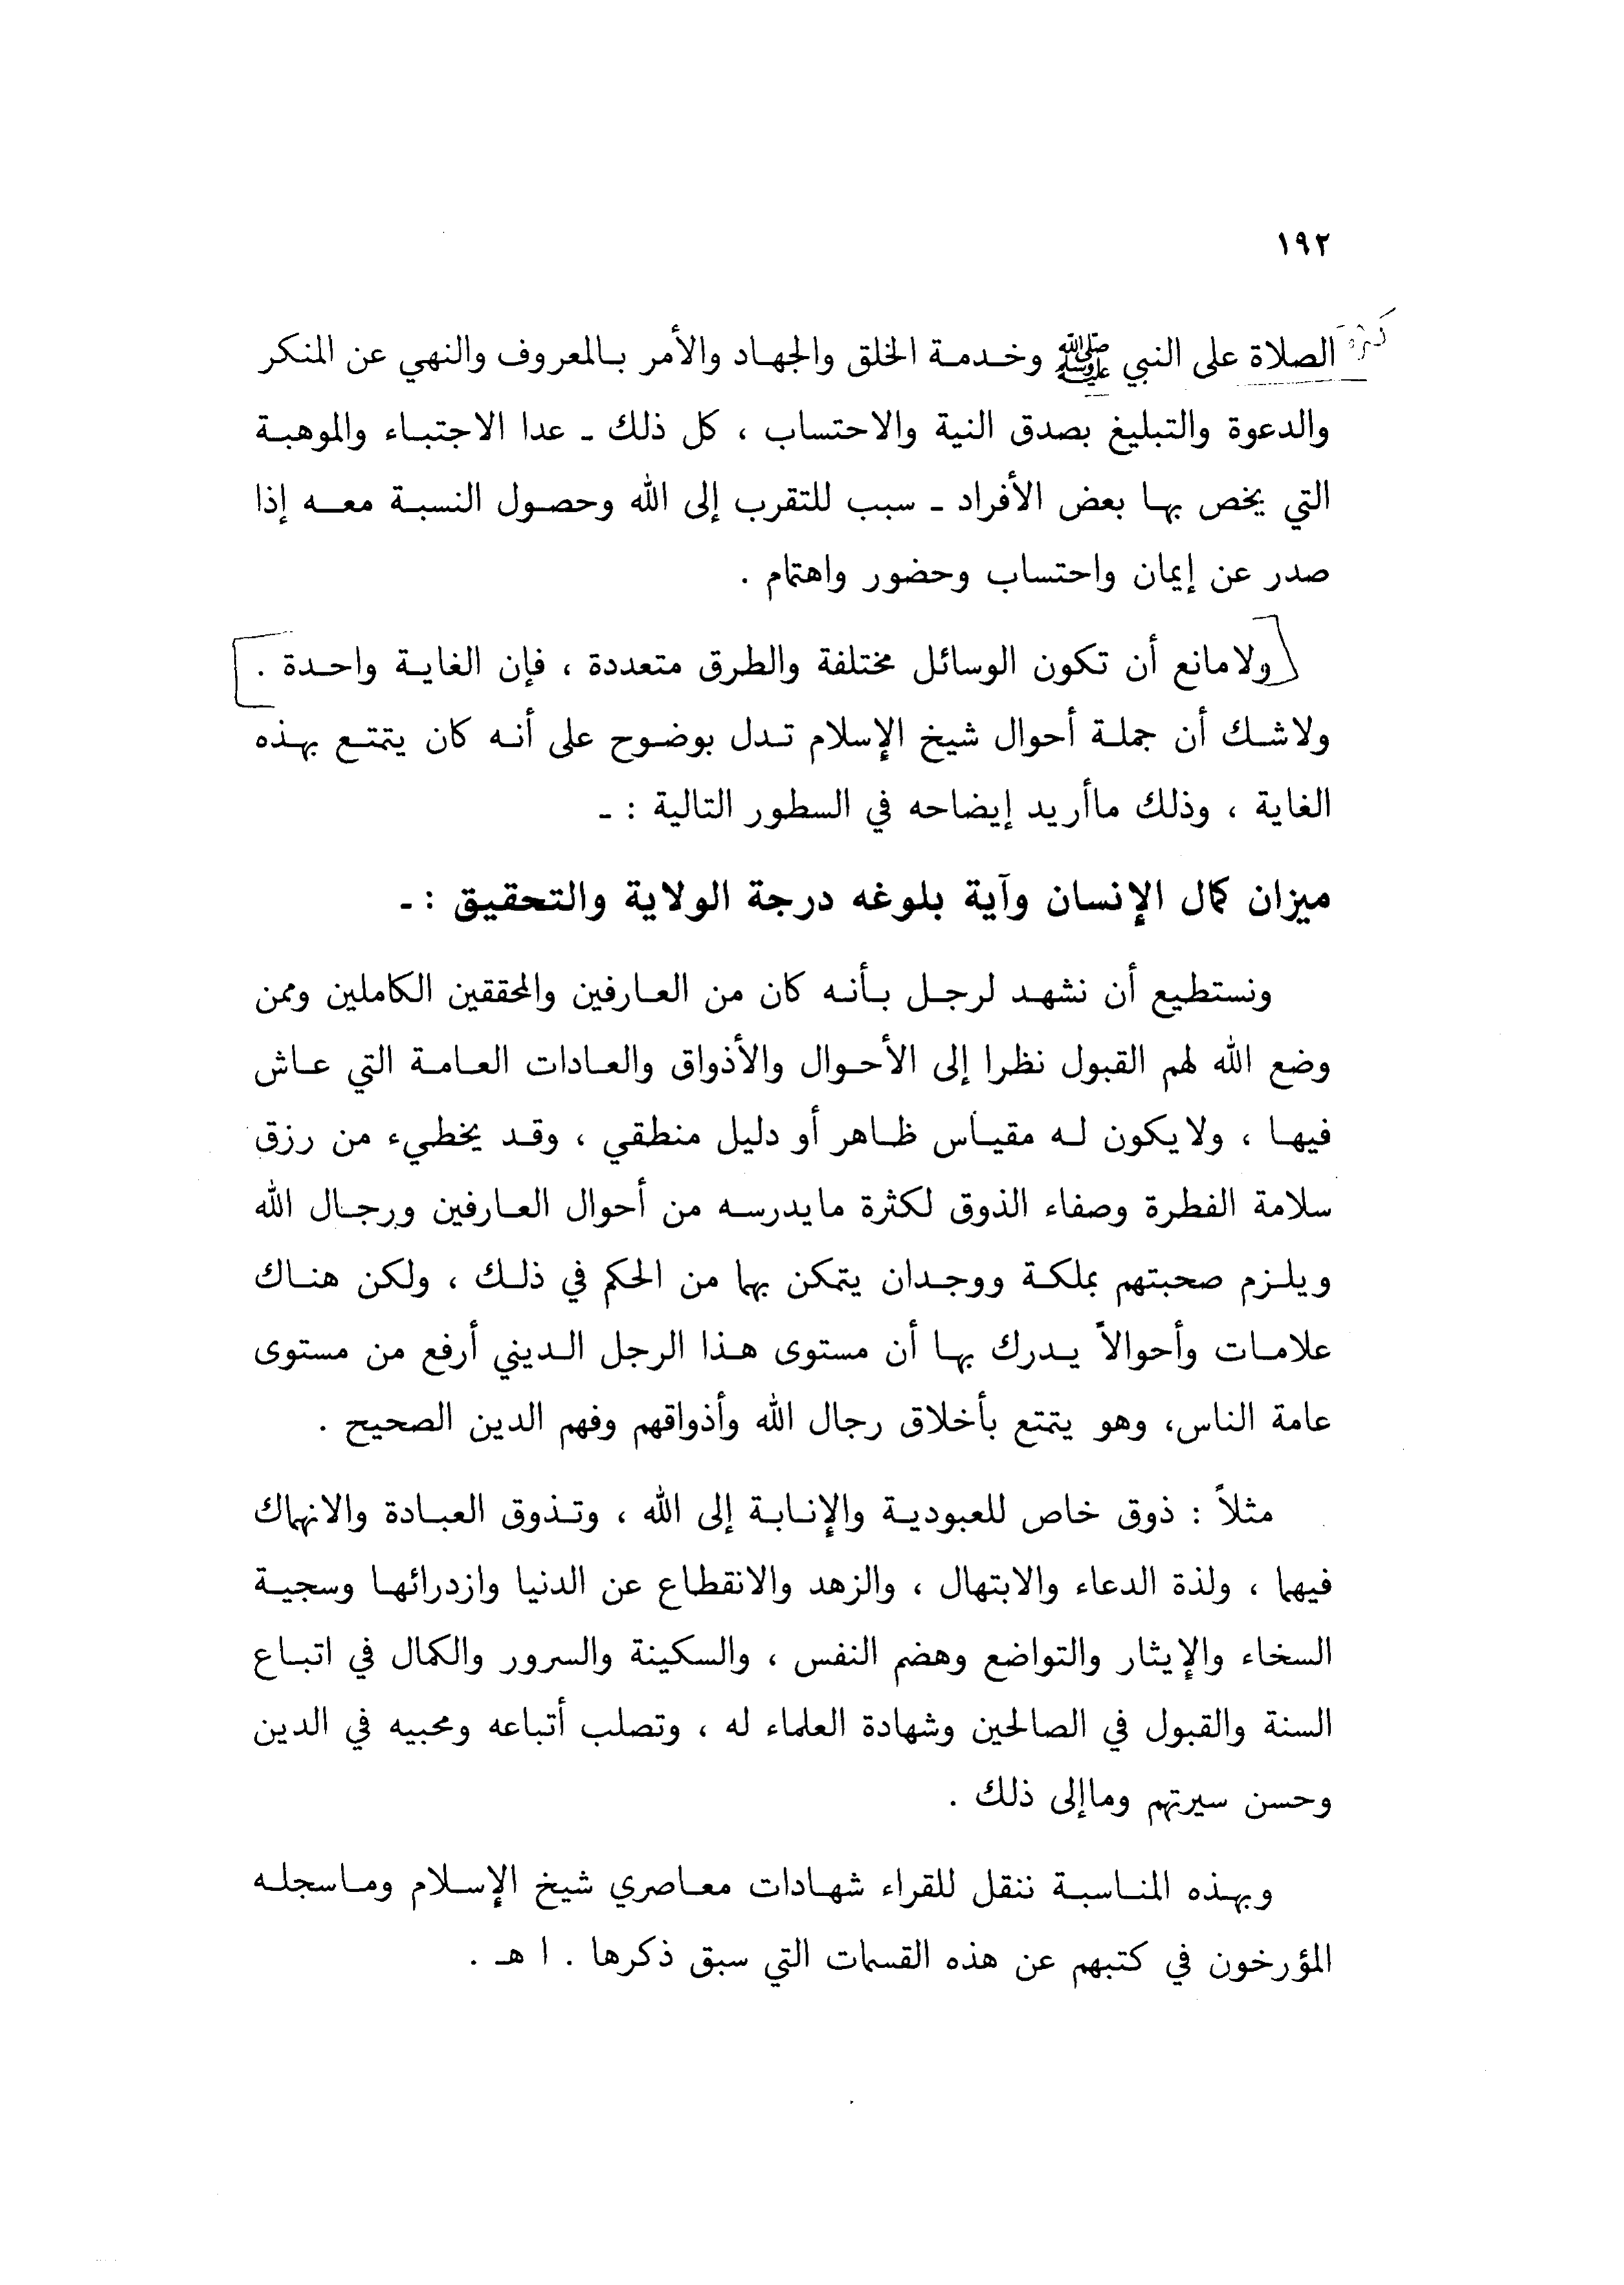 ١٩٢
كثرة
الصلاة على النبي ﷺ وخدمة الخلق والجهاد والأمر بالمعروف والنهي عن المنكر
والدعوة والتبليغ بصدق النية والاحتساب ، كل ذلك ـ عدا الاجتباء والموهبة
التي يخص بها بعض الأفراد ـ سبب للتقرب إلى الله وحصول النسبة معه إذا
صدر عن إيمان واحتساب وحضور واهتمام .
ولامانع أن تكون الوسائل مختلفة والطرق متعددة ، فإن الغاية واحدة .
ولاشك أن جملة أحوال شيخ الإسلام تدل بوضوح على أنه كان يتمتع بهذه
الغاية ، وذلك ماأريد إيضاحه في السطور التالية : ـ
ميزان كمال الإنسان وآية بلوغه درجة الولاية والتحقيق : ـ
ونستطيع أن نشهد لرجل بأنه كان من العارفين والمحققين الكاملين وممن
وضع الله لهم القبول نظرا إلى الأحوال والأذواق والعادات العامة التي عاش
فيها ، ولايكون له مقياس ظاهر أو دليل منطقي ، وقد يخطيء من رزق
سلامة الفطرة وصفاء الذوق لكثرة مايدرسه من أحوال العارفين ورجال الله
ويلزم صحبتهم بملكة ووجدان يتمكن بهما من الحكم في ذلك ، ولكن هناك
علامات وأحوالاً يدرك بها أن مستوى هذا الرجل الديني أرفع من مستوى
عامة الناس، وهو يتمتع بأخلاق رجال الله وأذواقهم وفهم الدين الصحيح .
مثلاً : ذوق خاص للعبودية والإنابة إلى الله ، وتذوق العبادة والانهماك
فيهما ، ولذة الدعاء والابتهال ، والزهد والانقطاع عن الدنيا وازدرائها وسجية
السخاء والإيثار والتواضع وهضم النفس ، والسكينة والسرور والكمال في اتباع
السنة والقبول في الصالحين وشهادة العلماء له ، وتصلب أتباعه ومحبيه في الدين
وحسن سيرتهم وماإلى ذلك .
وبهذه المناسبة ننقل للقراء شهادات معاصري شيخ الإسلام وماسجله
المؤرخون في كتبهم عن هذه القسمات التي سبق ذكرها . ا هـ .